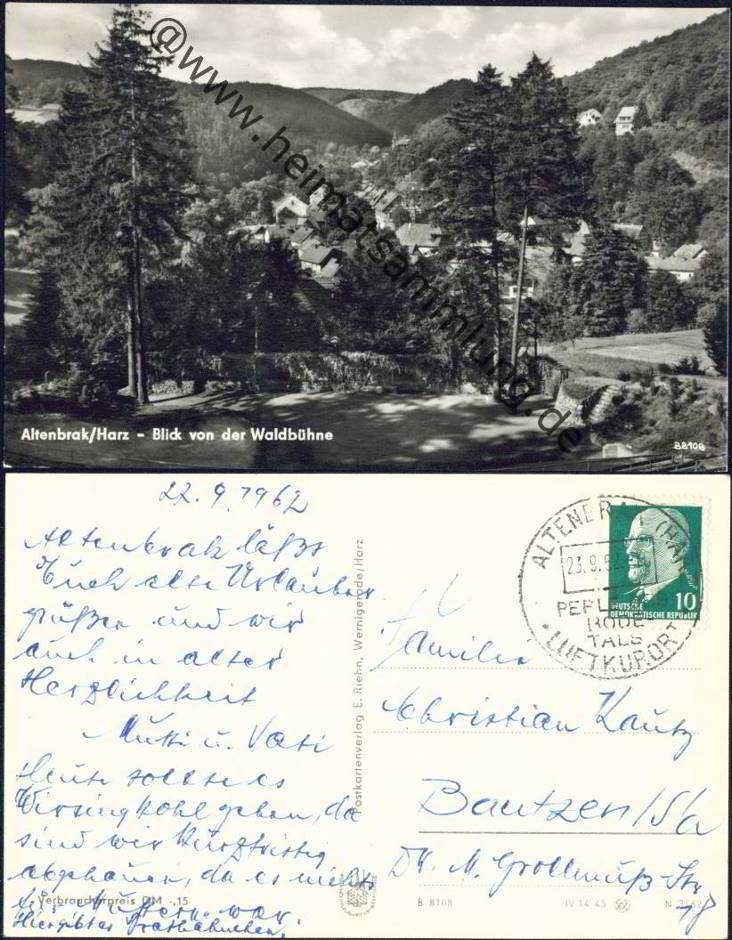 @www.heimatsammlung.de
Altenbrak/Harz - Blick von der Waldbühne
B8108
22.9.1962
Altenbrak läßt
Euch alte Urlauber
grüßen und wir
auch in alter
Herzlichkeit
Mutti u. Vati
Heute sollte es
Wirsingkohl geben, da
sind wir kurzfristig
abgehauen, da es nichts
für war.
Hier gibt es Brathähnchen.
Verbraucherpreis DM -,15
Postkartenverlag E. Riehn, Wernigerode/Harz
ALTENBRAK (HARZ)
23.9.62
PERLE
BODE
TALS
LUFTKURORT
DEUTSCHE
DEMOKRATISCHE REPUBLIK 10
Familie
Christian Kautz
Bautzen/Sa
Dr. M. Grollmuß-Str
B 8108 IV-14-45